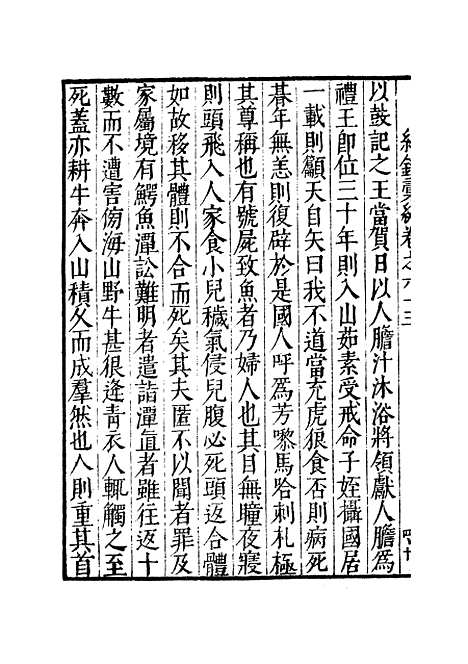 以鼓記之王當賀日以人膽汁沐浴將領獻人膽為
禮王卽位三十年則入山茹素受戒命子姪攝國居
一載則籲天自矢曰我不道當充虎狼食否則病死
朞年無恙則復辟於是國人呼爲芳嚟馬哈剌札極
其尊稱也有號屍致魚者乃婦人也其目無瞳夜寢
則頭飛入人家食小兒穢氣侵兒腹必死頭返合體
如故移其體則不合而死矣其夫匿不以聞者罪及
家屬境有鰐魚潭訟難明者遣詣潭直者雖往返十
數而不遭害傍海山野牛甚很逢靑衣人輒觸之至
死蓋亦耕牛奔入山積久而成羣然也人則重其首